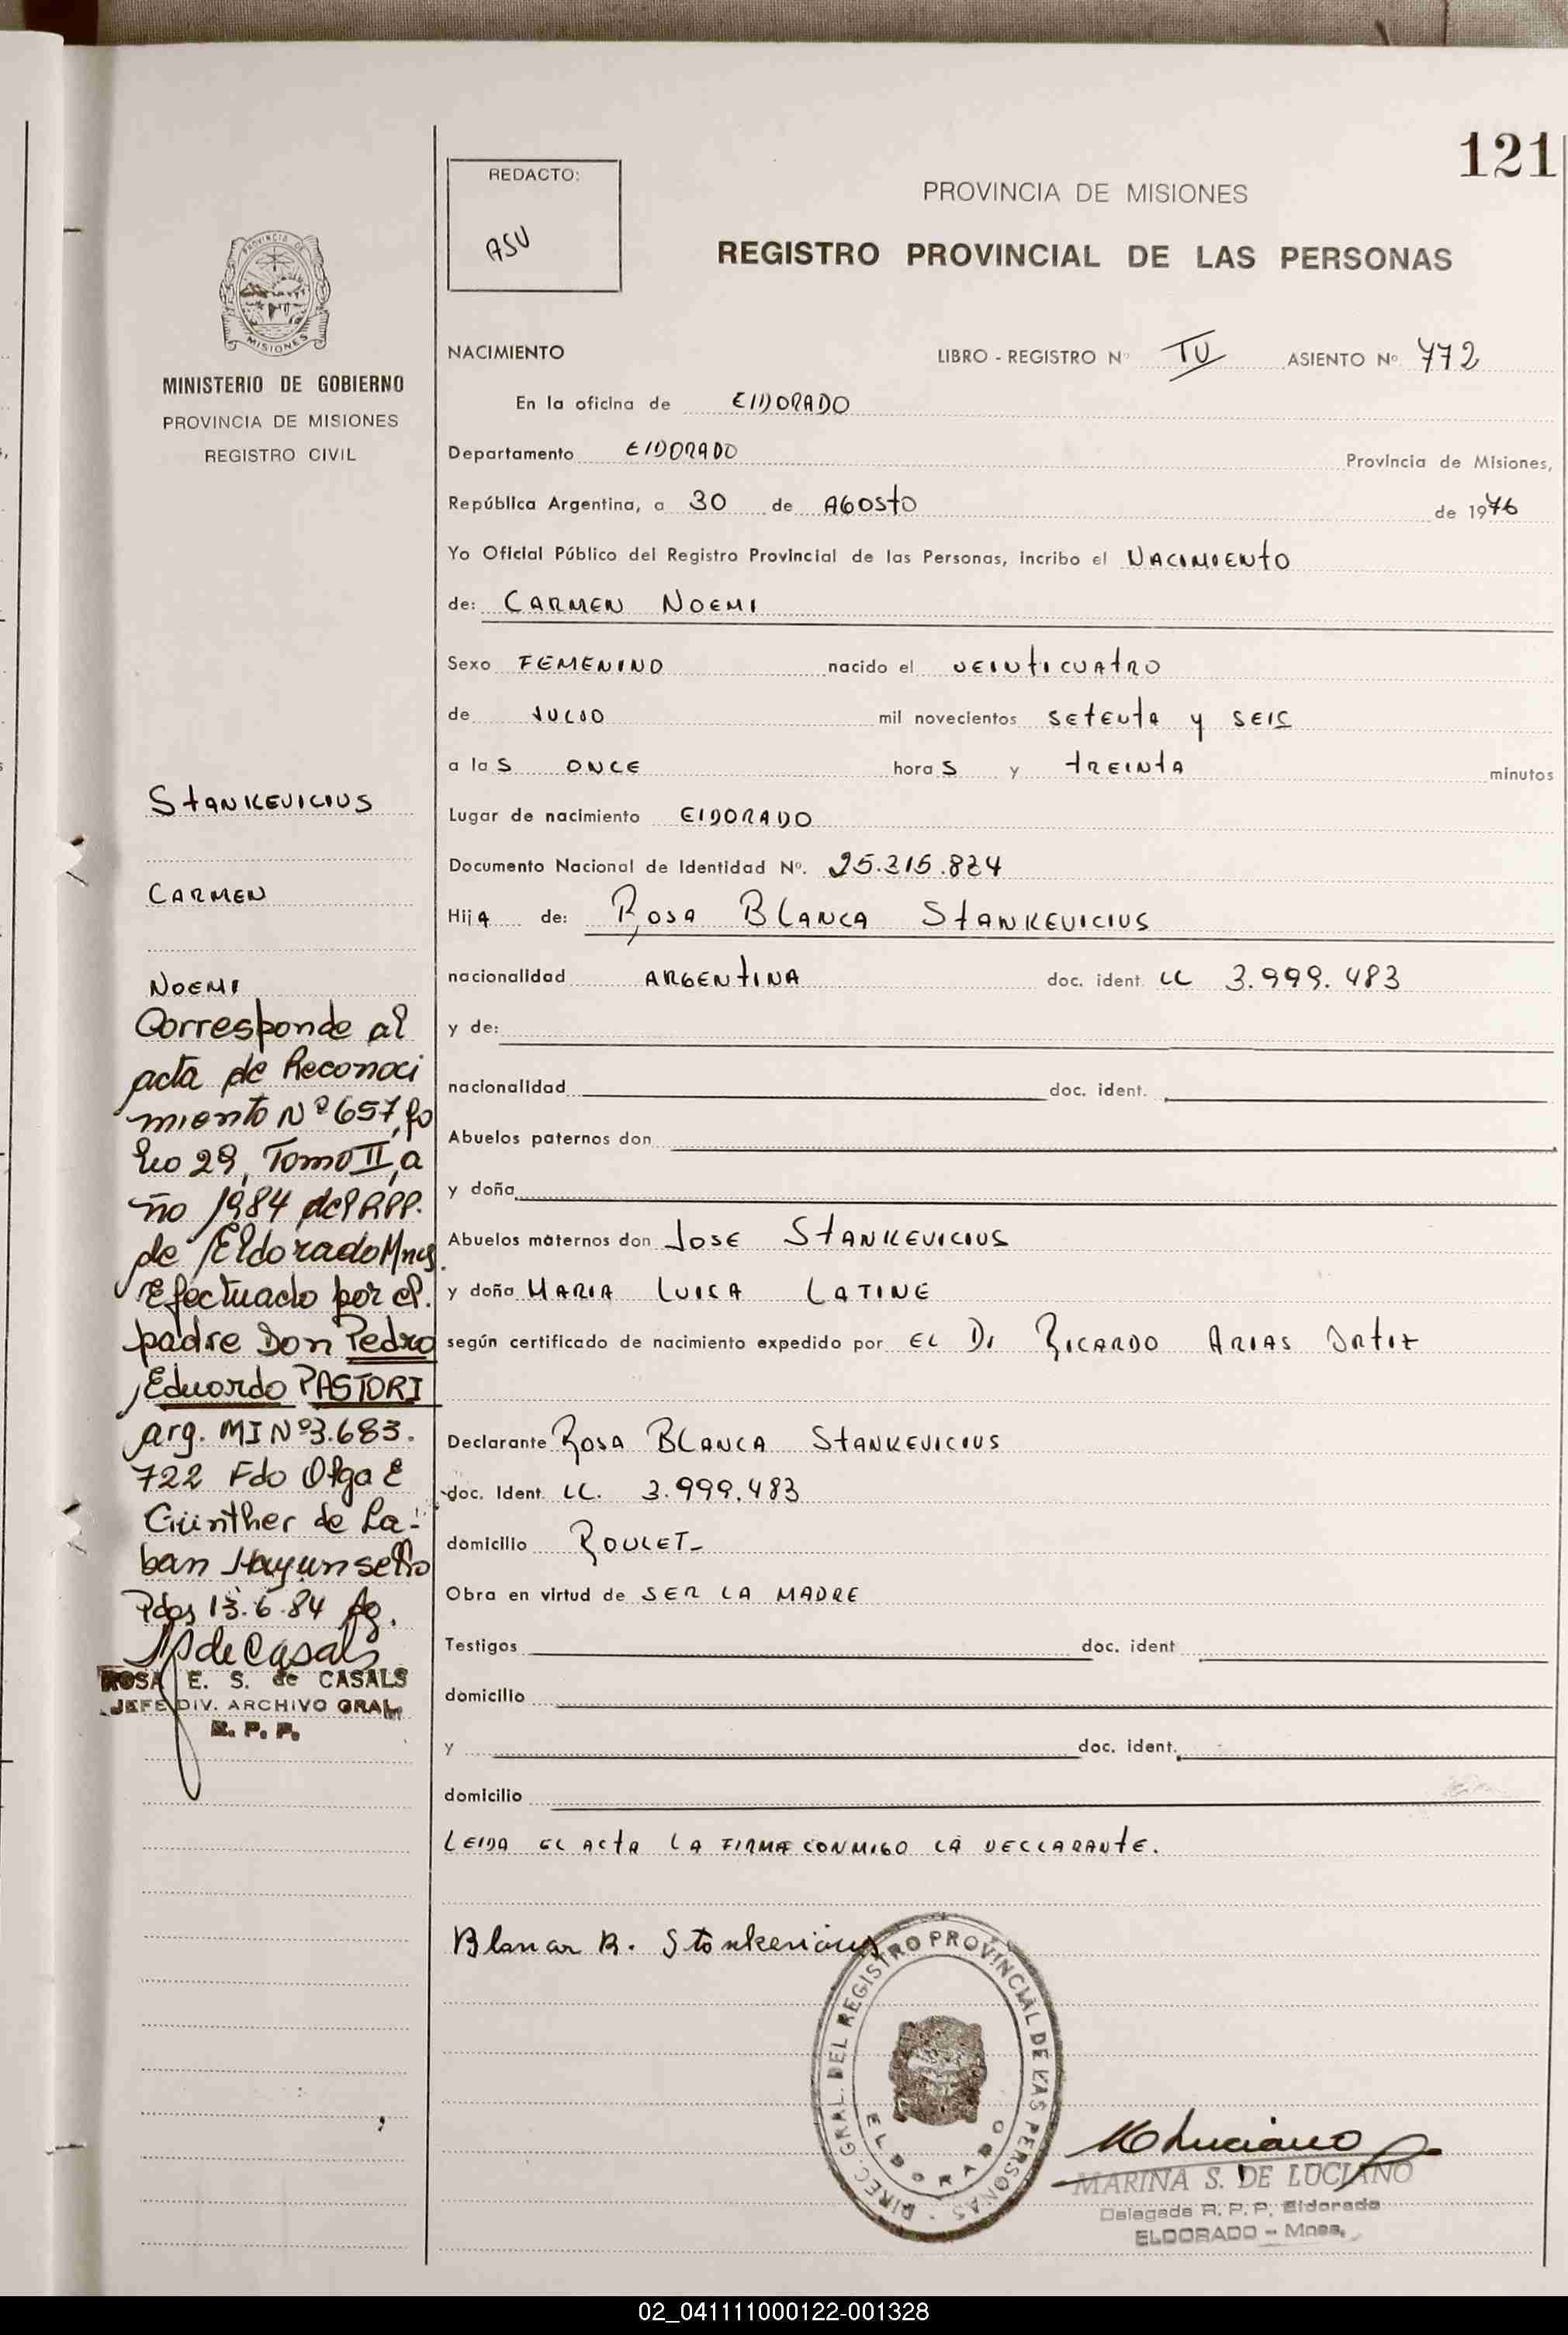 121
REDACTO:
ASU
PROVINCIA DE MISIONES
REGISTRO PROVINCIAL DE LAS PERSONAS
PROVINCIA DE
MISIONES
MINISTERIO DE GOBIERNO
PROVINCIA DE MISIONES
REGISTRO CIVIL
NACIMIENTO LIBRO - REGISTRO Nº IV ASIENTO Nº 772
En la oficina de ElDORADO
Departamento ElDORADO Provincia de Misiones,
República Argentina, a 30 de AGOSTO de 1976
Yo Oficial Público del Registro Provincial de las Personas, incribo el NACIMIENTO
de: CARMEN NOEMI
Sexo FEMENINO nacido el VEINTICUATRO
de JULIO mil novecientos SETENTA y SEIS
a las ONCE horas y TREINTA minutos
Lugar de nacimiento ElDORADO
Documento Nacional de Identidad Nº. 25.215.824
Hija de: ROSA BLANCA STANKEVICIUS
nacionalidad ARGENTINA doc. ident. LC 3.999.483
y de:
nacionalidad doc. ident.
Abuelos paternos don
y doña
Abuelos maternos don JOSE STANKEVICIUS
y doña MARIA LUISA LATINE
según certificado de nacimiento expedido por EL Dr RICARDO ARIAS ORTIZ
Declarante ROSA BLANCA STANKEVICIUS
doc. Ident. LC. 3.999.483
domicilio ROULET-
Obra en virtud de SER LA MADRE
Testigos doc. ident
domicilio
y doc. ident.
domicilio
LEIDA EL ACTA LA FIRMA CONMIGO LA DECLARANTE.
Blanca R. Stankevicius
STANKEVICIUS
CARMEN
NOEMI
Corresponde al
acta de Reconoci
miento Nº 657, fo
lio 29, Tomo II, a
ño 1984 del RPP.
de Eldorado Mnes.
Efectuado por el
padre Don Pedro
Eduardo PASTORI
arg. MI Nº 3.683.
722 Fdo Olga E
Günther de La-
ban Hay un sello
Pdas 13.6.84
de Casals
ROSA E. S. de CASALS
JEFE DIV. ARCHIVO GRAL.
R. P. P.
DIREC. GRAL. DEL REGISTRO PROVINCIAL DE KAS PERSONAS
ELDORADO
MARINA S. DE LUCIANO
Delegada R. P. P. Eldorado
ELDORADO - Mnes.
02_041111000122-001328